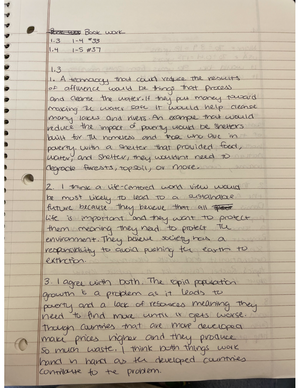 Book work
1.3 1-4 #38
1.4 1-5 #37
1.3
1. A technology that could reduce the results
of affluence would be things that process
and cleans the water. If they put money toward
making the water safe it would help cleanse
many lakes and rivers. An example that would
reduce the impact of poverty would be shelters
built for the homeless and those who are in
poverty. With a shelter that provided food,
water, and shelter, they wouldnt need to
degrade forests, topsoil, or more.
2. I think a life-centered world view would
be most likely to lead to a sustainable
future because they believe that all
life is important and they want to protect
them meaning they need to protect the
environment. They believe society has a
responsibility to avoid pushing the earth to
extinction.
3. I agree with both. The rapid population
growth is a problem as it leads to
poverty and a lack of resources meaning they
need to find more until it gets worse.
Though countries that are more developed
make prices higher and they produce
so much waste. I think both things work
hand in hand as the developed countries
contribute to the problem.